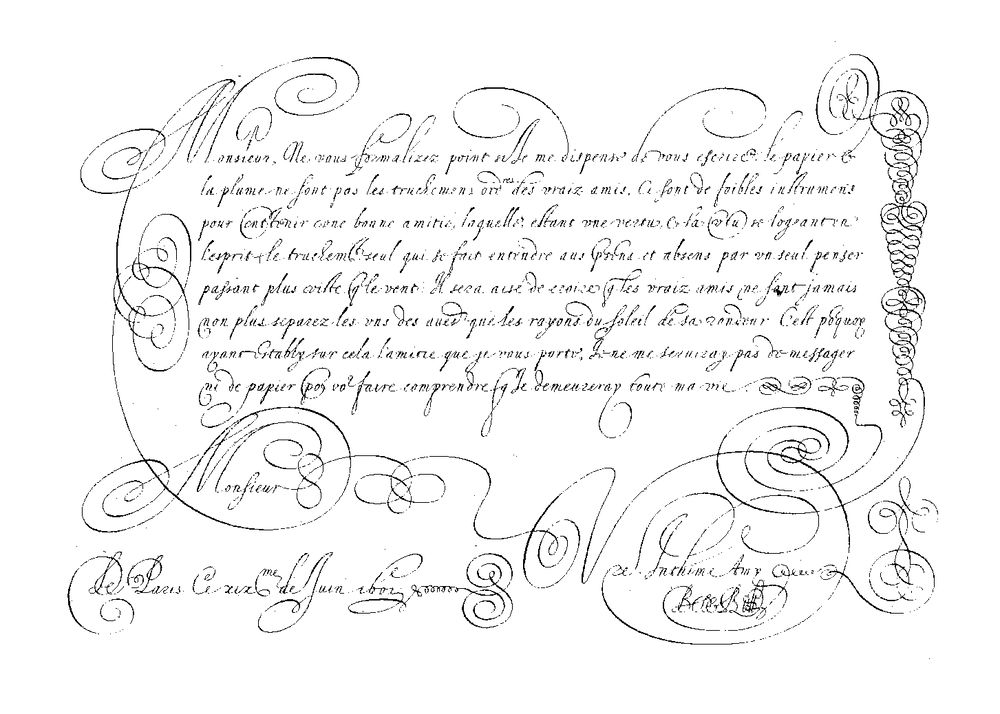 Monsieur, Ne vous formalizez point si Je me dispense de vous escrire. le papier &
la plume ne sont pas les truchemens ordres des vraiz amis. Ce sont de foibles instrumens
pour entretenir vne bonne amitie, laquelle, estant vne vertu, & la vertu se logeant en
l'esprit, le truchemt seul qui se fait entendre aus pnts et absens par vn seul penser
passant plus viste q le vent. Il sera aisé de croire q les vraiz amis ne sont jamais
non plus separez les vns des aues que les rayons du soleil de sa rondeur C'est pquoy
ayant Estably sur cela l'amitie que je vous porte, Je ne me seruiray pas de messager
ni de papier por vos faire comprendre q Je demeureray toute ma vie
Monsieur
De Paris Ce xixme de Juin 1602
Vre Inthime Amy